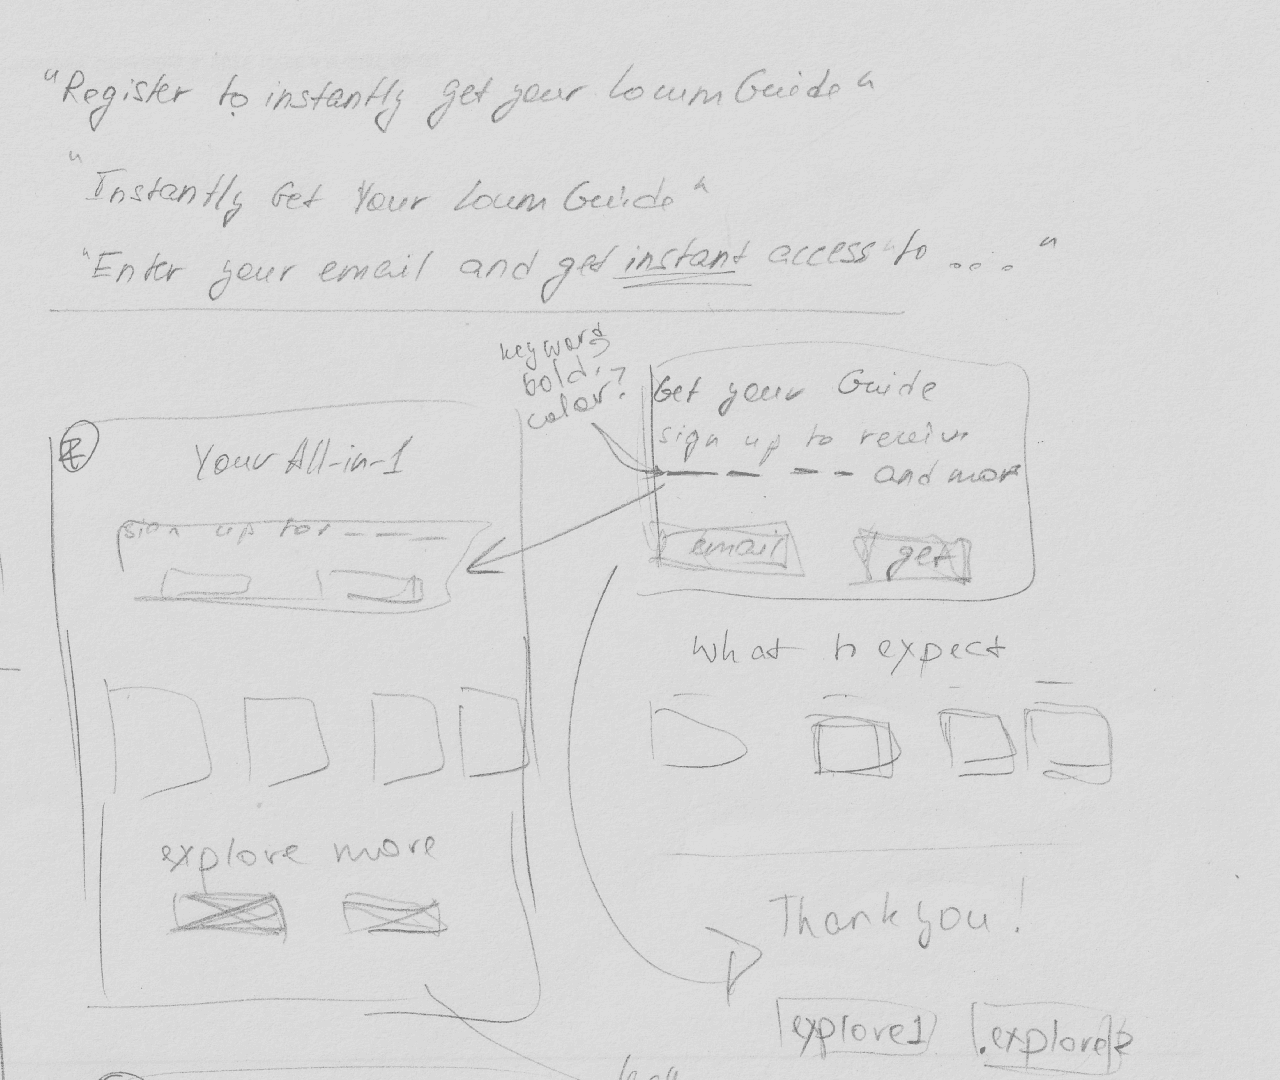 "Register to instantly get your Locum Guide"
"Instantly Get Your Locum Guide"
"Enter your email and get instant access to ..."
keyword
bold?
color?
Get your Guide
sign up to receive
and more
email
get
Your All-in-1
sign up for
What to expect
explore more
Thank you!
explore1
explore2